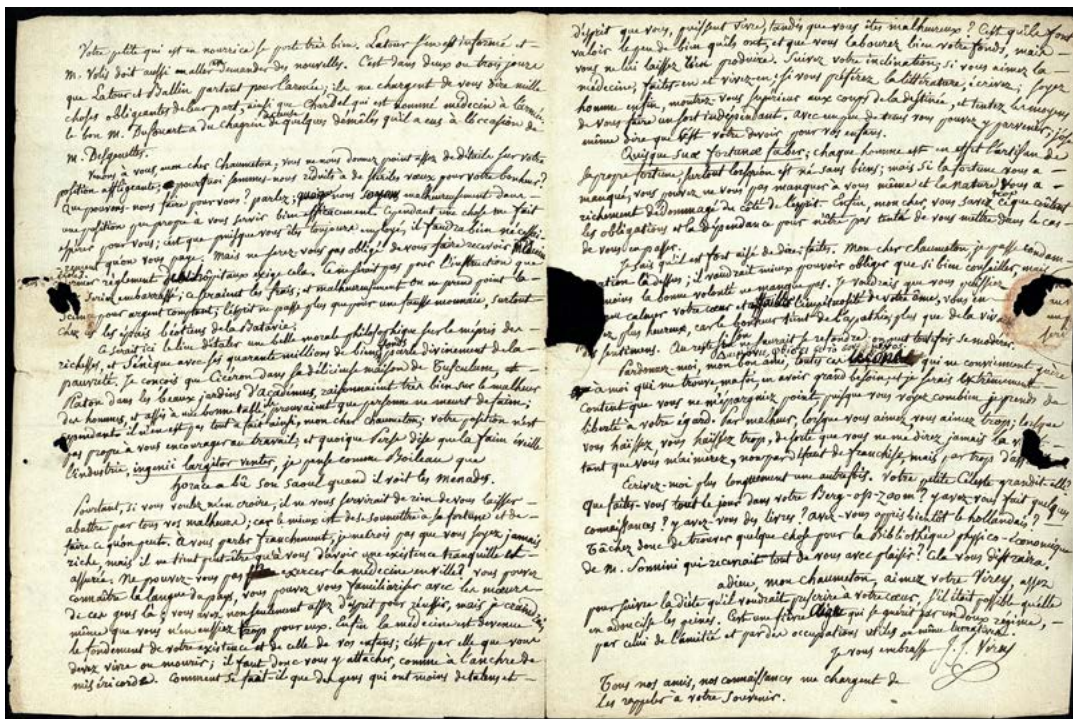 Votre petite qui est en nourrice se porte très bien. Latour s'en est informé et
M. Volis doit aussi en aller demander des nouvelles. C'est dans deux ou trois jours
que Latour et Ballin partent pour l'armée; ils me chargent de vous dire mille
choses obligeantes de leur part, ainsi que Chardel qui est nommé médecin à l'armée.
le bon M. a du chagrin à cause de quelques démêlés qu'il a eus à l'occasion de
M. Desgenettes.
Venons à vous, mon cher Chaumeton; vous ne nous donnez point assez de détails sur votre
position affligeante; pourquoi sommes-nous réduits à de stériles vœux pour votre bonheur?
Que pouvons-nous faire pour vous? parlez; nous malheureusement dans
une position peu propre à vous servir bien efficacement. Cependant une chose me fait
espérer pour vous; c'est que puisque vous êtes toujours employé, il faudra bien nécessai-
rement qu'on vous paye. Mais ne serez vous pas obligé de vous faire recevoir médecin
dernier règlement des hôpitaux exige cela. Ce ne serait pas pour l'instruction que
je serais embarrassé, ce seraient les frais; et malheureusement on ne prend point la
science pour argent comptant; l'esprit ne passe plus que pour une fausse monnaie, surtout
chez les épais béotiens de la Batavie;
Ce serait ici le lieu d'étaler une belle morale philosophique sur le mépris des
richesses, et Sénèque avec ses quarante millions de biens fonds parle divinement de la
pauvreté. Je conçois que Cicéron dans sa délicieuse maison de Tusculum, et
Platon dans les beaux jardins d'Académus, raisonnaient très bien sur le malheur
des hommes, et assis à une bonne table ils prouvaient que personne ne meurt de faim;
cependant il n'en est pas tout à fait ainsi, mon cher Chaumeton; votre position n'est
pas propre à vous encourager au travail; et quoique Perse dise que la faim éveille
l'industrie, ingenii largitor venter, je pense comme Boileau que
horace a bû son saoul quand il voit les Menades.
Pourtant, si vous voulez m'en croire, il ne vous servirait de rien de vous laisser
abattre par tous vos malheurs; car le mieux est de se soumettre à sa fortune et de
faire ce qu'on peut. A vous parler franchement, je ne crois pas que vous soyez jamais
riche, mais il ne tient peut-être qu'à vous d'avoir une existence tranquille et
assurée. Ne pouvez-vous pas exercer la médecine en ville? vous pouvez
connaître la langue du pays, vous pouvez vous familiariser avec les mœurs
de ces gens là; vous avez non seulement assez d'esprit pour réussir, mais je crains
même que vous n'en eussiez trop pour eux. Enfin la médecine est devenue
le fondement de votre existence et de celle de vos enfans; c'est par elle que vous
devez vivre ou mourir; il faut donc vous y attacher, comme à l'anchre de
miséricorde. Comment se fait-il que des gens qui ont moins de talens et
d'esprit que vous, puissent vivre, tandis que vous êtes malheureux? C'est qu'ils font
valoir le peu de bien qu'ils ont, et que vous labourez bien votre fonds, mais
vous ne lui laissez rien produire. Suivez votre inclination; si vous aimez la
médecine, faites-en et vivez-en; si vous préférez la littérature, écrivez; soyez
homme enfin, montrez-vous supérieur aux coups de la destinée, et tentez les moyens
de vous faire un sort indépendant, avec un peu de vous pouvez y parvenir; j'ose
même dire que c'est votre devoir pour vos enfans.
Quisque suæ fortunæ faber; chaque homme est en effet l'artisan de
sa propre fortune, surtout lorsqu'on est né sans biens; mais si la fortune vous a
manqué, vous pouvez ne vous pas manquer à vous même et la nature vous a
richement dédommagé du côté de l'esprit. Enfin, mon cher, vous savez trop ce que coûtent
les obligations et la dépendance pour n'être pas tenté de vous mettre dans le cas
de vous en passer.
Je sais qu'il est fort aisé de dire; faites. Mon cher Chaumeton, je passe condam-
nation là dessus; il vaudrait mieux pouvoir obliger que si bien conseiller, mais
moins la bonne volonté ne manque pas. Je voudrais que vous puissiez
un peu calmer votre cœur et l'impétuosité de votre âme, vous en
plus heureux, car le bonheur tient de l'apathie, plus que de la
des sentimens. Au reste on ne saurait se refondre, on peut toutefois se modérer.
Pardonnez-moi, mon bon ami, toutes ces leçons qui ne conviennent guère
à moi qui me trouve ma foi, en avoir grand besoin, et je serais extrêmement
content que vous ne m'épargniez point, puisque vous voyez combien je prends de
liberté à votre égard. Par malheur, lorsque vous aimez, vous aimez trop; lorsque
vous haïssez vous haïssez trop, de sorte que vous ne me direz jamais la
tant que vous m'aimerez, non par défaut de franchise, mais par trop d'aff
Ecrivez-moi plus longuement une autre fois. Votre petite Céleste grandit-elle?
Que faites-vous tout le jour dans votre Berg-op-zoom? y avez-vous fait quelques
connaissances? y avez-vous des livres? avez-vous appris bientôt le hollandais?
Tâchez donc de trouver quelque chose pour la Bibliothèque physico-économique
de M. Sonnini qui recevrait tout de vous avec plaisir? Cela vous distraira.
adieu, mon Chaumeton, aimez votre Virey assez
pour suivre la diète qu'il voudrait prescrire à votre cœur. S'il était possible qu'elle
en adoucisse les peines. C'est une fièvre qui se guérit par un doux régime,
par celui de l'amitié et par des occupations utiles ou même lucratives.
Je vous embrasse J. J. Virey
Tous nos amis, nos connaissances me chargent de
les rappeler à votre souvenir.